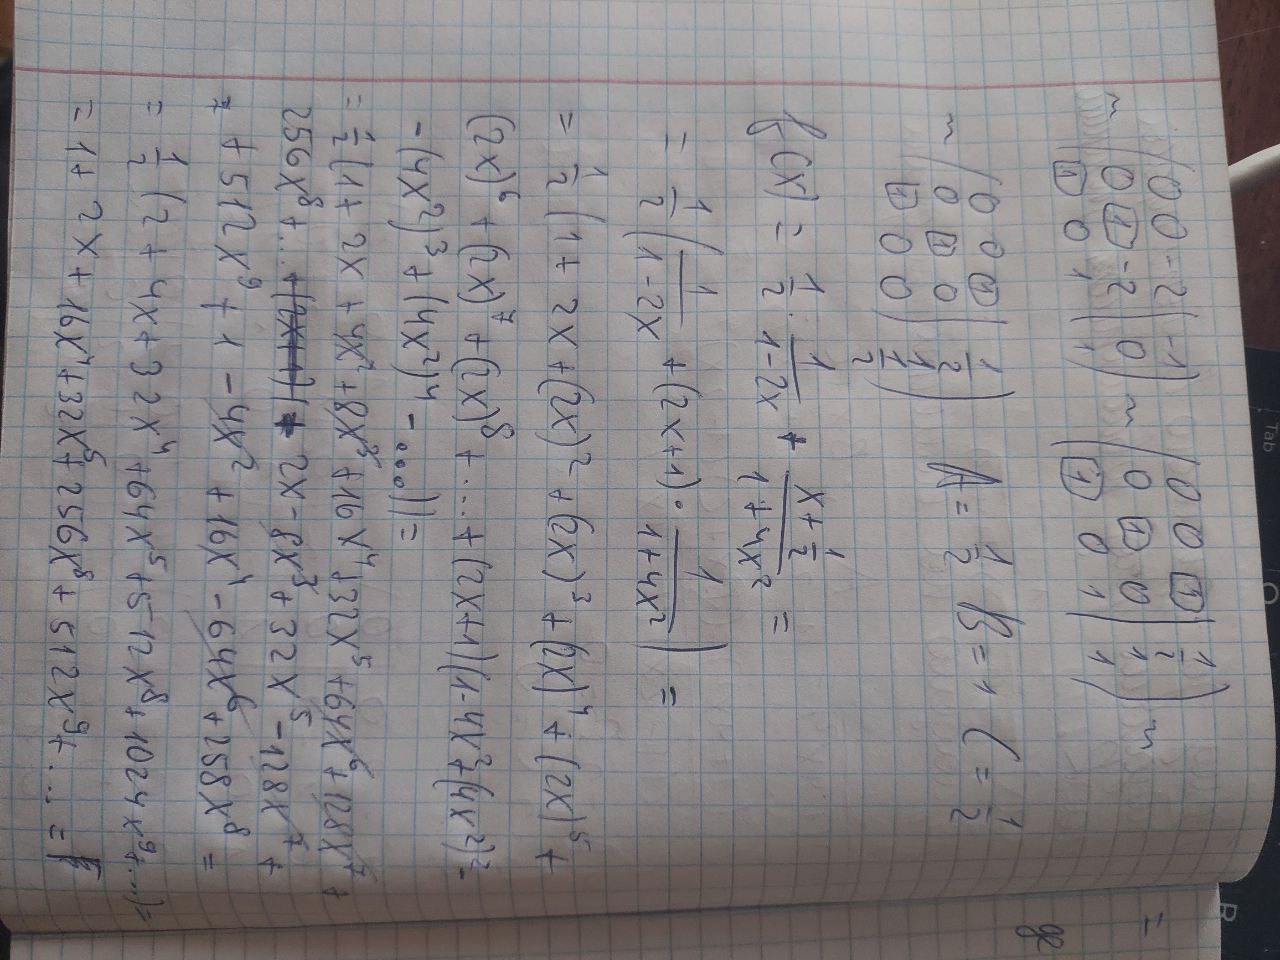 ~ (0 0 -2 | -1) ~ (0 0 1 | 1/2) ~
(0 1 -2 | 0) (0 1 0 | 1)
(1 0 1 | 1) (1 0 1 | 1)
~ (0 0 1 | 1/2) A = 1/2 B = 1 C = 1/2
(0 1 0 | 1)
(1 0 0 | 1/2)
f(x) = 1/2 · 1/(1-2x) + (x+1/2)/(1+4x²) =
= 1/2 (1/(1-2x) + (2x+1) · 1/(1+4x²)) =
= 1/2 (1+2x+(2x)²+(2x)³+(2x)⁴+(2x)⁵+
(2x)⁶+(2x)⁷+(2x)⁸+...+(2x+1)(1-4x²+(4x²)²-
-(4x²)³+(4x²)⁴-...)) =
= 1/2 (1+2x+4x²+8x³+16x⁴+32x⁵+64x⁶+128x⁷+
256x⁸+... + 2x-8x³+32x⁵-128x⁷+
+512x⁹+1-4x²+16x⁴-64x⁶+258x⁸ =
= 1/2 (2+4x+32x⁴+64x⁵+512x⁸+1024x⁹+...) =
= 1+2x+16x⁴+32x⁵+256x⁸+512x⁹+... =
Tab